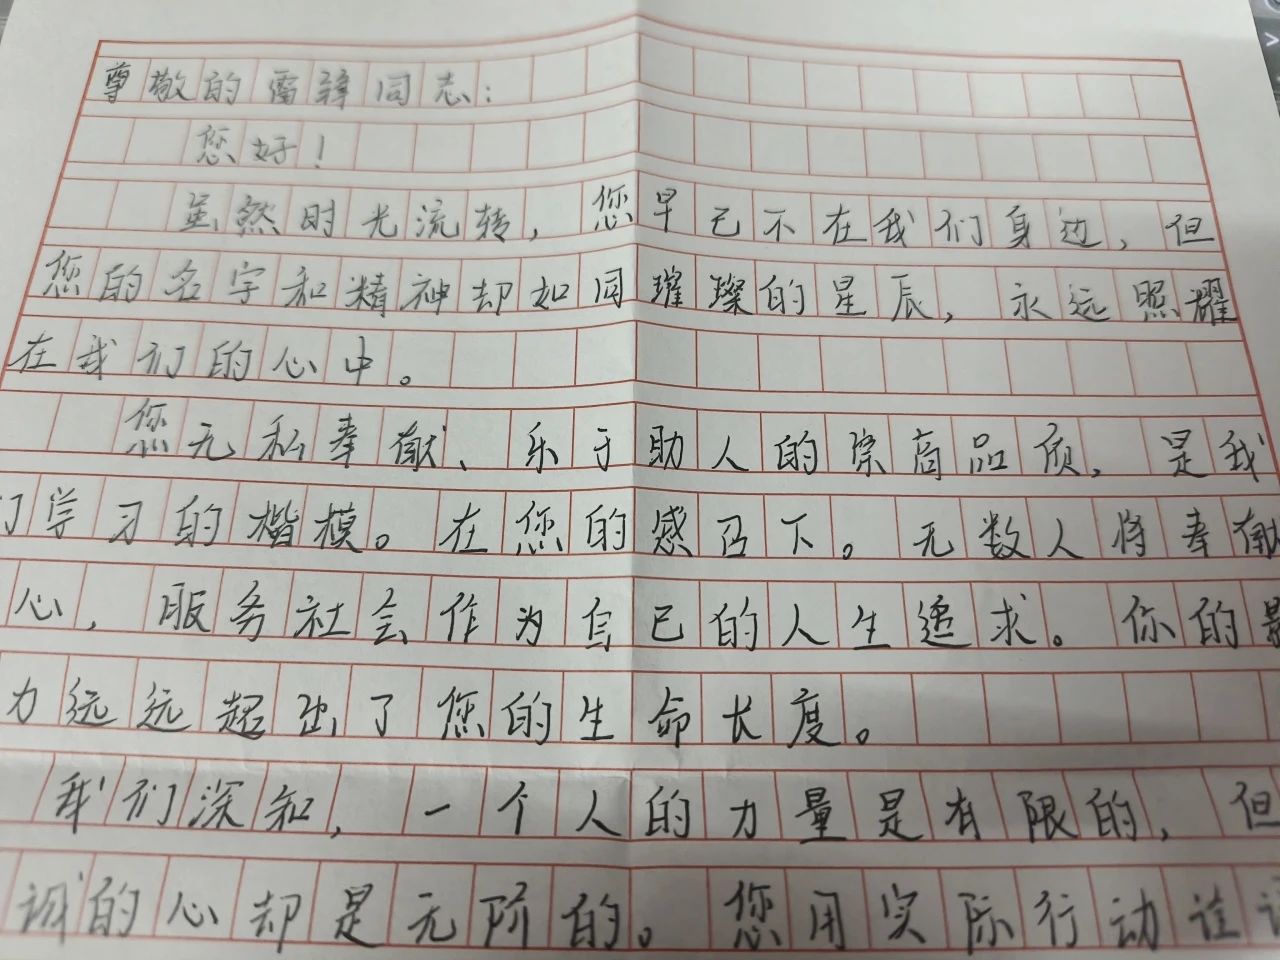 尊敬的雷锋同志：
您好！
虽然时光流转，您早已不在我们身边，但
您的名字和精神却如同璀璨的星辰，永远照耀
在我们的心中。
您无私奉献、乐于助人的崇高品质，是我
们学习的楷模。在您的感召下。无数人将奉献
心，服务社会作为自己的人生追求。你的影
力远远超出了您的生命长度。
我们深知，一个人的力量是有限的，但
诚的心却是无阶的。您用实际行动诠